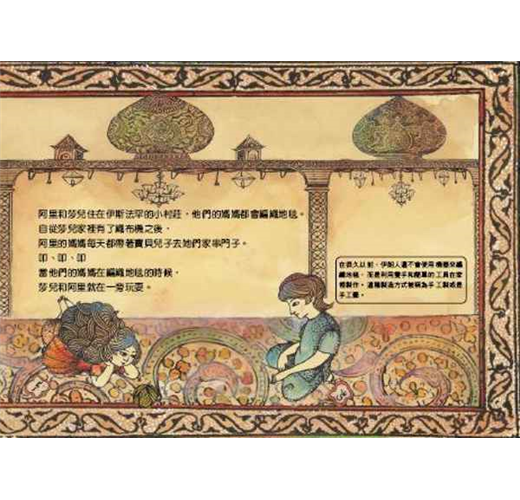 阿里和莎兒住在伊斯法罕的小村莊，他們的媽媽都會編織地毯。
自從莎兒家裡有了織布機之後，
阿里的媽媽每天都帶著寶貝兒子去她們家串門子。
叩、叩、叩
當他們的媽媽在編織地毯的時候，
莎兒和阿里就在一旁玩耍。
在很久以前，伊朗人還不會使用機器來編
織地毯，而是利用雙手和簡單的工具在家
裡製作。這種製造方式被稱為手工製或是
手工織。